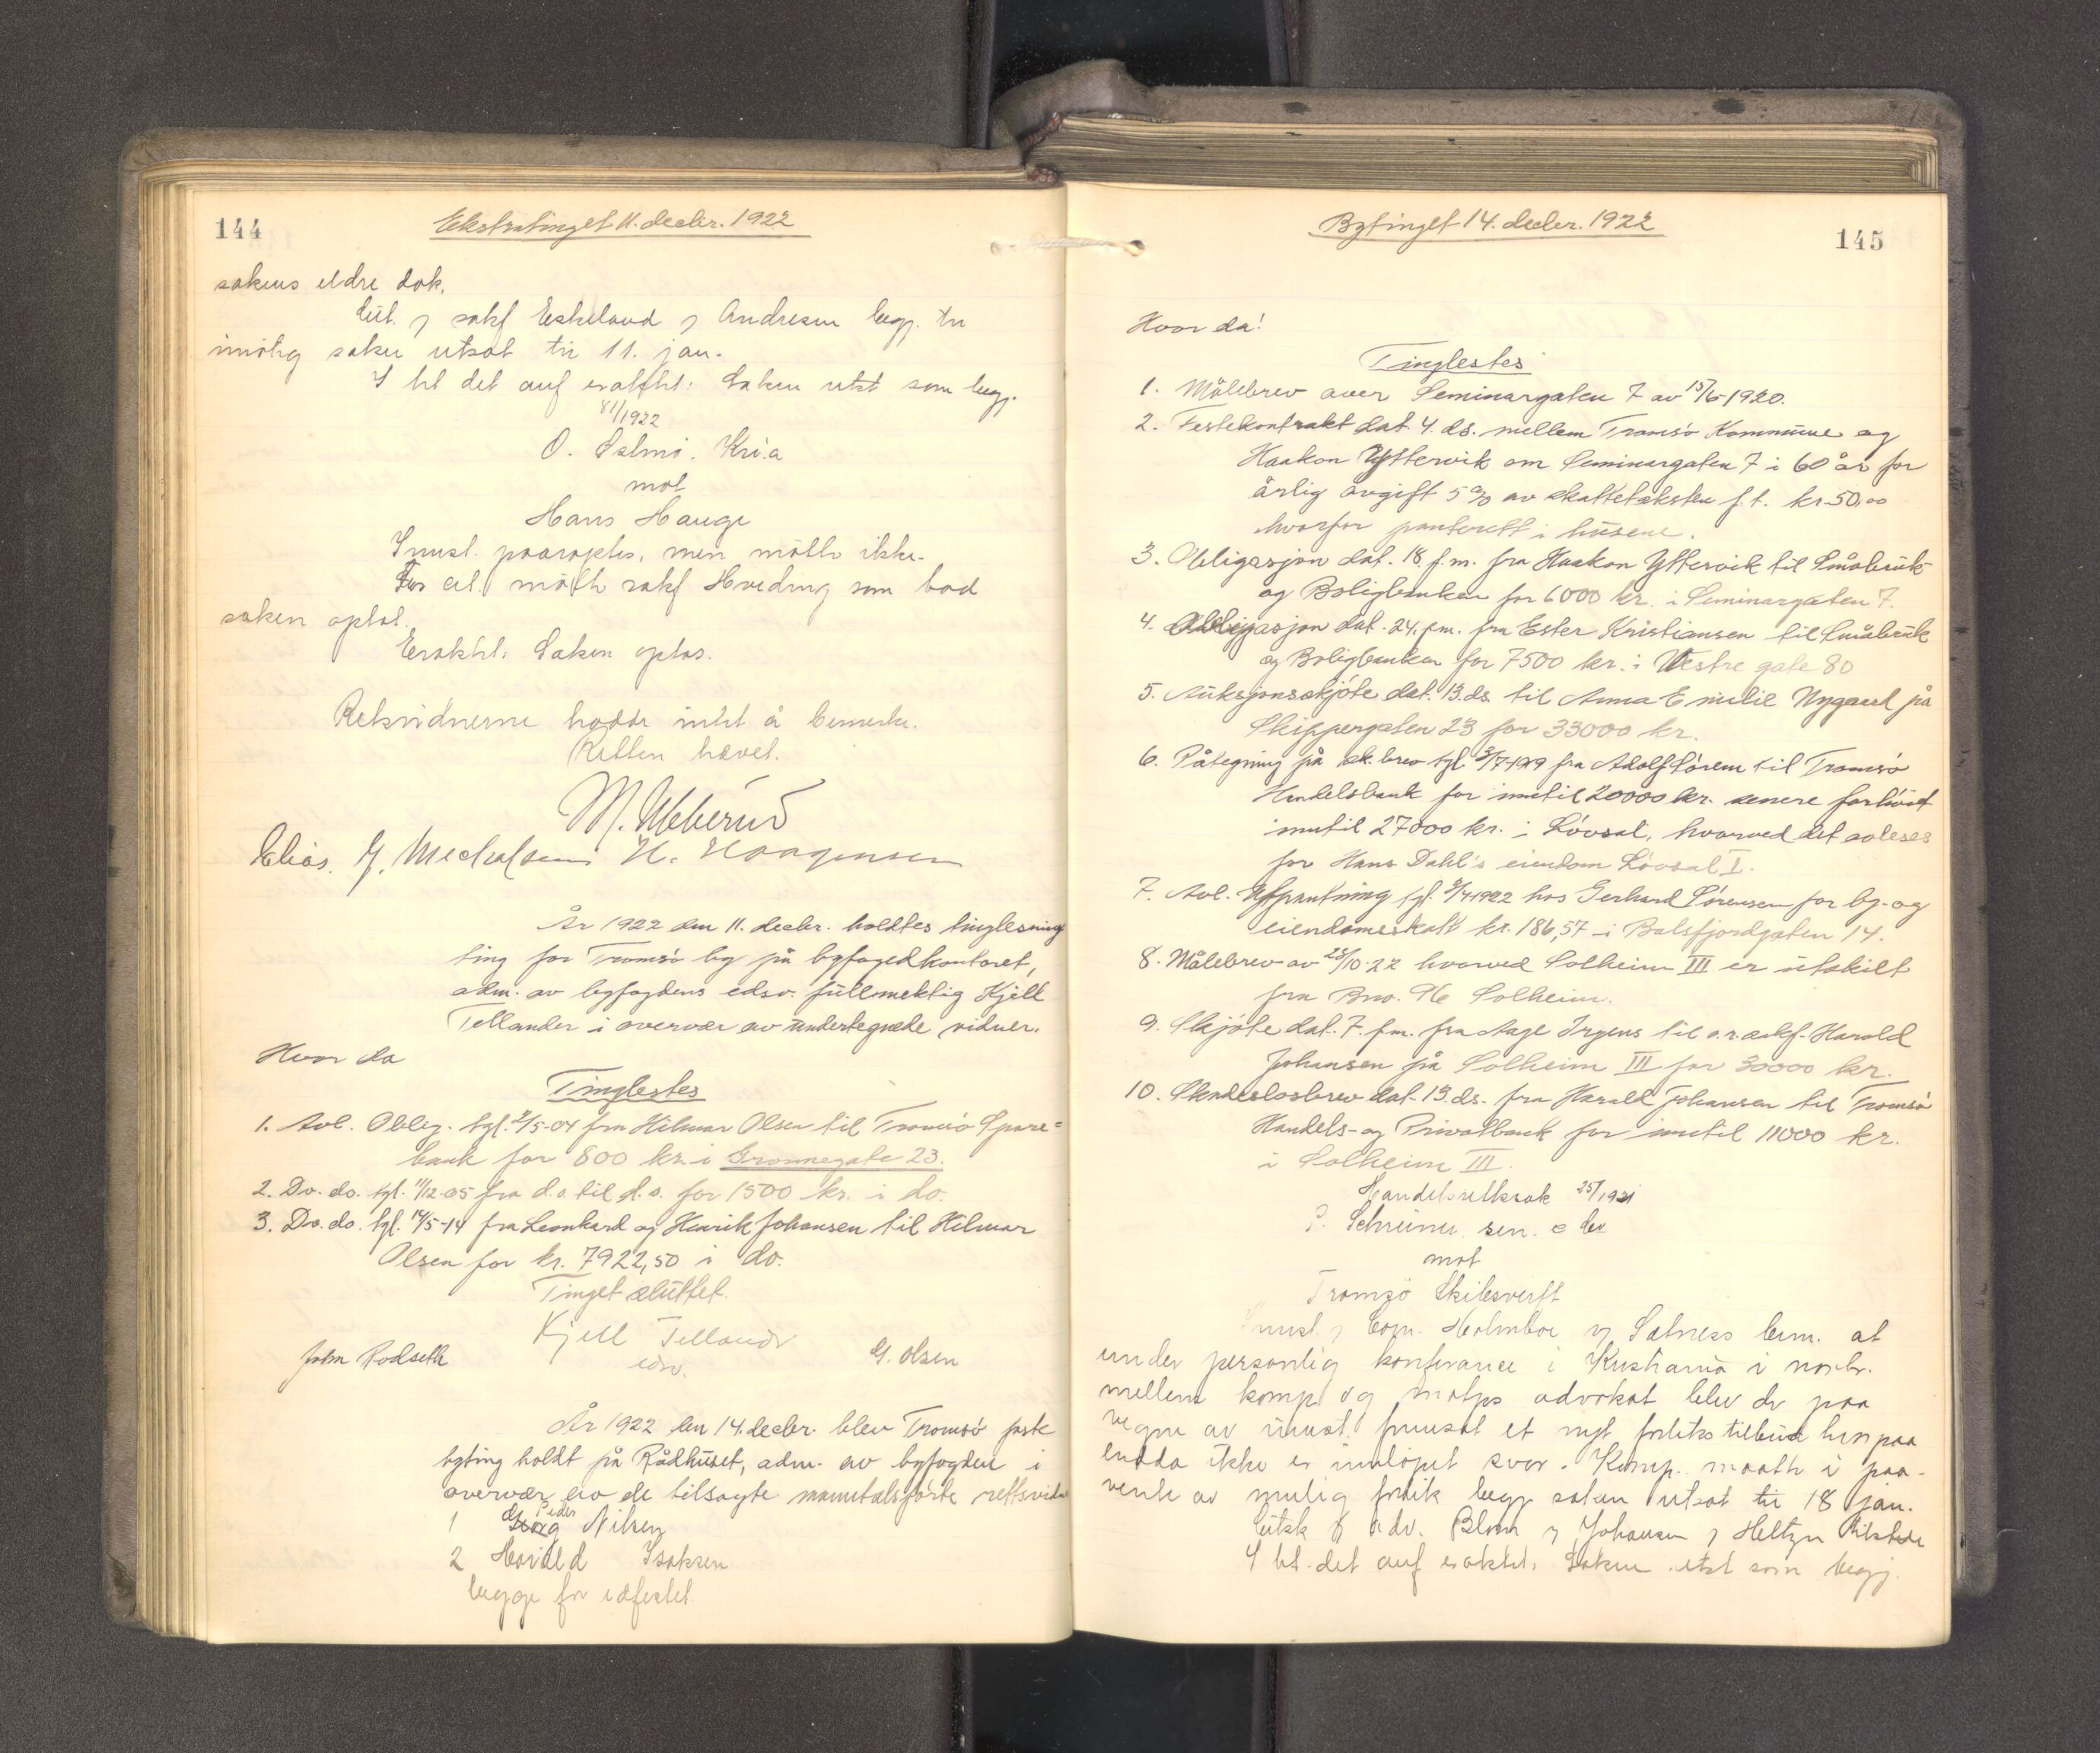 144
Ekstratinget 11. decbr. 1922
sakens eldre dok.
Cit. v sakf Eskeland v Andresen begj. in
imøtg saken utsat til 11. jan.
I hl det auf eraktet: Saken utst som begj.
81/1922
O. Salmi. Kri.a
mot
Hans Hauge
Innst. paaroptes, men mötte ikke.
For cit. mötte sakf Hveding som bad
saken optat.
Eraktet: Saken optas.
Retsvidnerne hadde intet å bemerke.
Retten hævet.
Elias. J. Mechalsen H. Haagensen
År 1922 den 11. decbr. holdtes tinglesning
ting for Tromsö by på byfogedkontoret,
adm. av byfogdens edsv. fullmektig Kjell
Tellander i overvær av undertegnede vidner.
Hvor da
Tinglestes
1. Avl. Oblig. tgl. 2/5-04 fra Hilmar Olsen til Tromsö Spare=
bank for 800 kr. i Grønnegate 23.
2. Do. do. tgl. 11/12-05 fra d.o. til d.o. for 1500 kr. i do.
3. Do. do. tgl. 14/5-14 fra Leonhard og Henrik Johansen til Hilmar
Olsen for kr. 7922,50 i do.
Tinget sluttet.
Kjell Tellander
edsv.
John Rodseth
G. Olsen
År 1922 den 14. decbr. blev Tromsö faste
byting holdt på Rådhuset, adm. av byfogden i
overvær av de tilsagte mannstalsførte rettsvidner
1 Peder Nilsen
2 Harald Isaksen
begge før edfestet.
Bytinget 14. decbr. 1922
145
Hvor da!
Tinglestes
1. Målebrev over Seminargaten 7 av 15/6-1920.
2. Festekontrakt dat. 4. ds. mellem Tromsö Kommune og
Haakon Yttervik om Seminargaten 7 i 60 år for
årlig avgift 5 % av skattetaksten f.t. kr. 50,00
hvorfor panterett i husene.
3. Obligasjon dat. 18. f.m. fra Haakon Yttervik til Småbruk-
og Boligbanken for 6000 kr. i Seminargaten 7.
4. Obligasjon dat. 24. f.m. fra Ester Kristiansen til Småbruk
og Boligbanken for 7500 kr. i Vestre gate 80
5. Auksjonsskjöte dat. 13. ds. til Anna Emilie Nygaard på
Skippergaten 23 for 33000 kr.
6. Påtegning på sk.brev tgl. 3/7-1919 fra Adolf Sörem til Tromsö
Handelsbank for inntil 20000 kr. senere forhöiet
inntil 27000 kr. i Lövsal, hvorved det avleses
for Hans Dahl's eiendom Lövsal I.
7. Avl. Utpantning tgl. 6/4 1922 hos Gerhard Sörensen for by- og
eiendomsskatt kr. 186,57 i Balsfjordgaten 14.
8. Målebrev av 28/10-22 hvorved Solheim III er utskilt
fra Bno. 96 Solheim.
9. Skjöte dat. 7. f.m. fra Aage Irgens til o.r.sakf. Harald
Johansen på Solheim III for 30000 kr.
10. Skadeslosbrev dat. 13. ds. fra Harald Johansen til Tromsö
Handels- og Privatbank for inntil 11000 kr.
i Solheim III.
Handelsrettssak 25/1921
P. Schreiner sen. & Co
mot
Tromsö Skibsverft
Innst. v Holmboe v Salness bem. at
under personlig konferance i Kristiania i novbr.
mellem komp og motps advokat blev der paa
vegne av innst. fremsat et nyt forlikstilbud hvorpaa
endda ikke er indløpet svar. Komp. maatte i paa-
vente av mulig forlik begj saken utsat til 18 jan.
Citsk v adv. Blom v Johansen v Heltzen
I hl. det auf eraktet: Saken utst som begj.